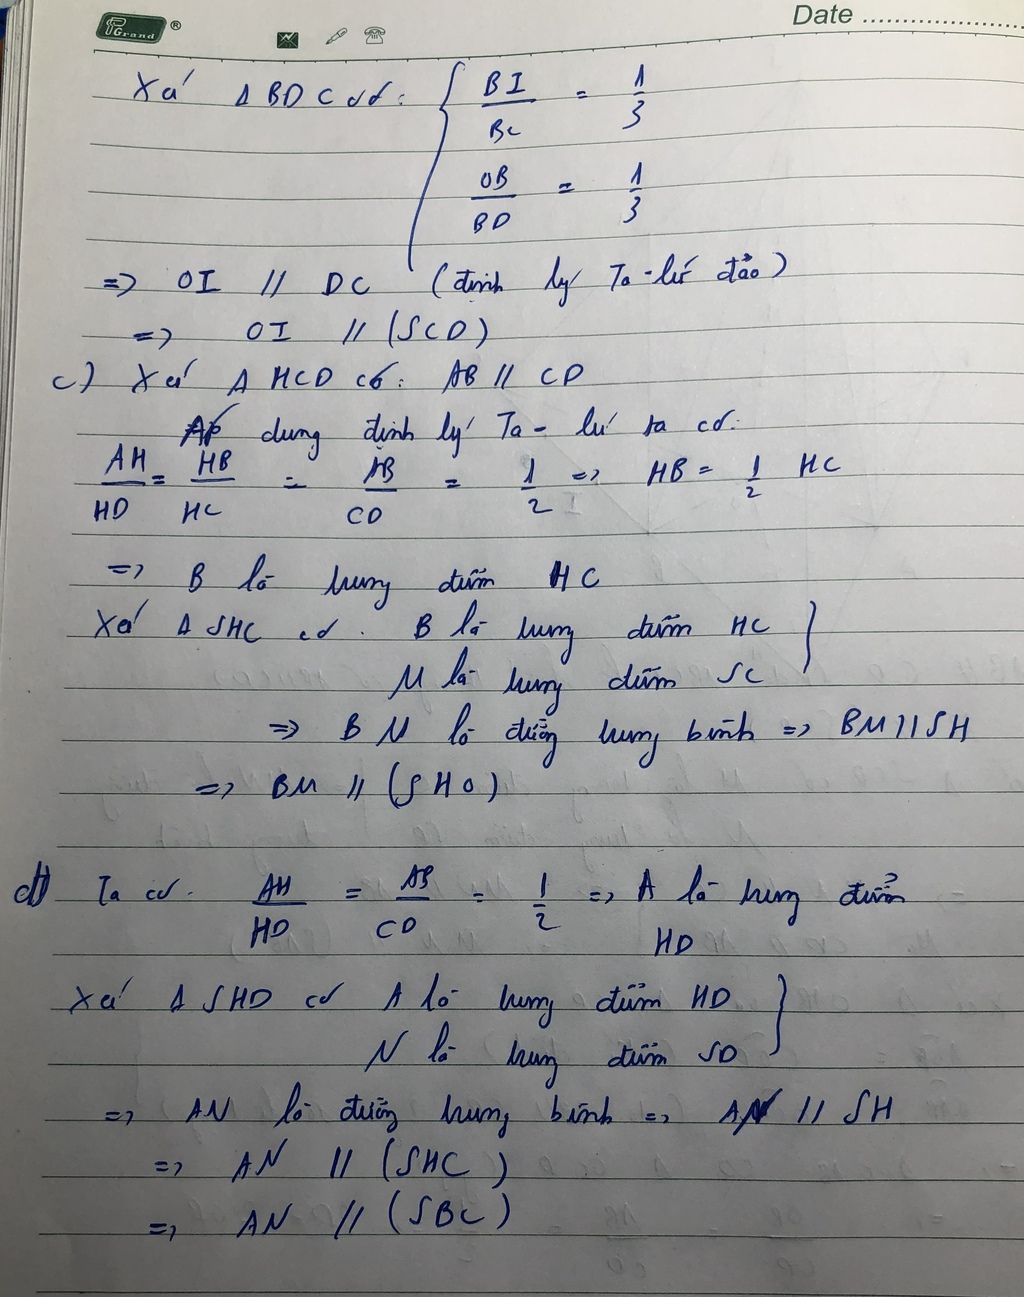 PGrand ®
Date
Xét Δ BDC có: { BI/BC = 1/3
OB/BD = 1/3
=> OI // DC (định lý Ta-lét đảo)
=> OI // (SCD)
c) Xét Δ HCD có: AB // CD
Áp dung định lý Ta-lét ta có:
AH/HD = HB/HC = AB/CD = 1/2 => HB = 1/2 HC
=> B là trung điểm HC
Xét Δ SHC có. B là trung điểm HC }
M là trung điểm SC
=> BM là đường trung bình => BM // SH
=> BM // (SHD)
d) Ta có. AH/HD = AB/CD = 1/2 => A là trung điểm
HD
Xét Δ SHD có A là trung điểm HD }
N là trung điểm SD
=> AN là đường trung bình => AN // SH
=> AN // (SHC)
=> AN // (SBC)